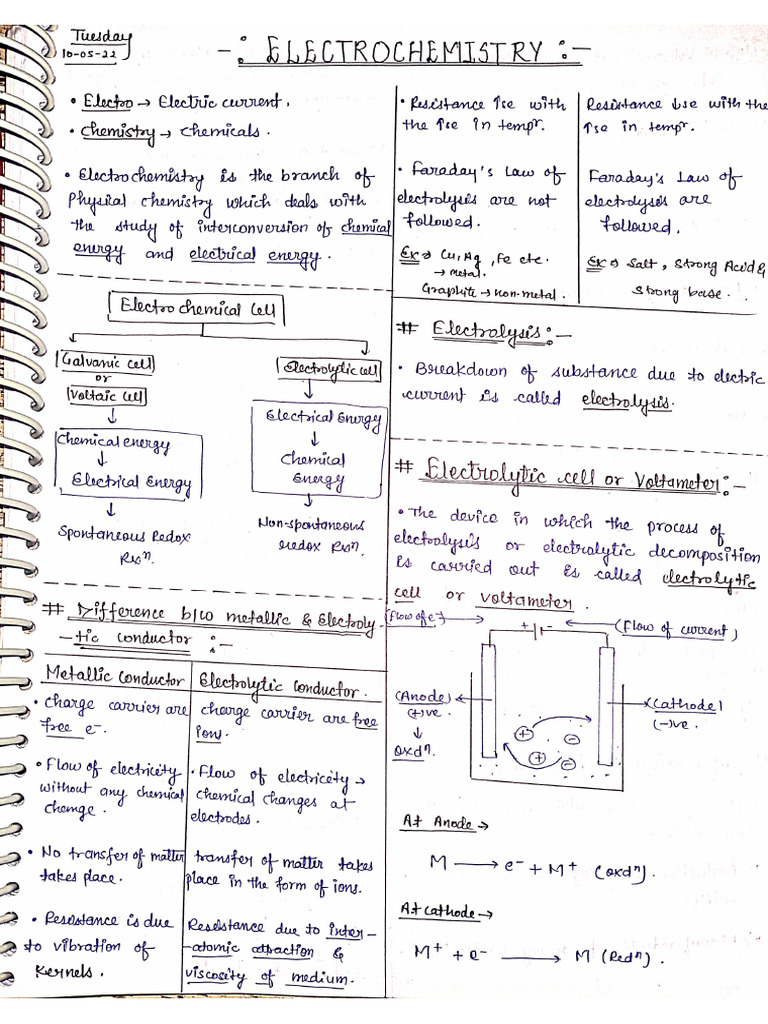 Tuesday
10-05-22
-: ELECTROCHEMISTRY :-
• Electro → Electric current.
• Chemistry → Chemicals.
• Electrochemistry is the branch of
Physical chemistry which deals with
the study of interconversion of chemical
energy and electrical energy.
Electrochemical Cell
Galvanic cell
or
Voltaic cell
Electrolytic cell
Chemical energy
↓
Electrical Energy
Electrical Energy
↓
Chemical
Energy
Spontaneous Redox
Rxⁿ
Non-spontaneous
redox Rxⁿ.
# Difference b/w metallic & Electroly
-tic conductor :-
Metallic Conductor
Electrolytic Conductor.
• Charge carrier are
free e⁻.
charge carrier are free
ions.
• Flow of electricity
without any chemical
change.
• Flow of electricity →
chemical changes at
electrodes.
• No transfer of matter
takes place.
transfer of matter takes
place in the form of ions.
• Resistance is due
to vibration of
Kernels.
Resistance due to inter-
-atomic attraction &
viscosity of medium.
• Resistance ↑se with
the ↑se in tempr.
Resistance ↓se with the
↑se in tempr.
• Faraday's Law of
electrolysis are not
followed.
Faraday's Law of
electrolysis are
followed.
Ex → Cu, Ag, Fe etc.
→ metal.
Graphite → non-metal.
Ex → Salt, Strong Acid &
Strong base.
# Electrolysis :-
• Breakdown of substance due to electric
current is called electrolysis.
# Electrolytic cell or Voltameter :-
• The device in which the process of
electrolysis or electrolytic decomposition
is carried out is called electrolytic
cell or voltameter.
(flow of e⁻)
+ -
(Flow of current)
(Anode)
(+)ve
↓
Oxdⁿ.
(Cathode)
(-)ve.
+ -
+ -
At Anode →
M → e⁻ + M⁺ (oxdⁿ).
At cathode →
M⁺ + e⁻ → M (Redⁿ).